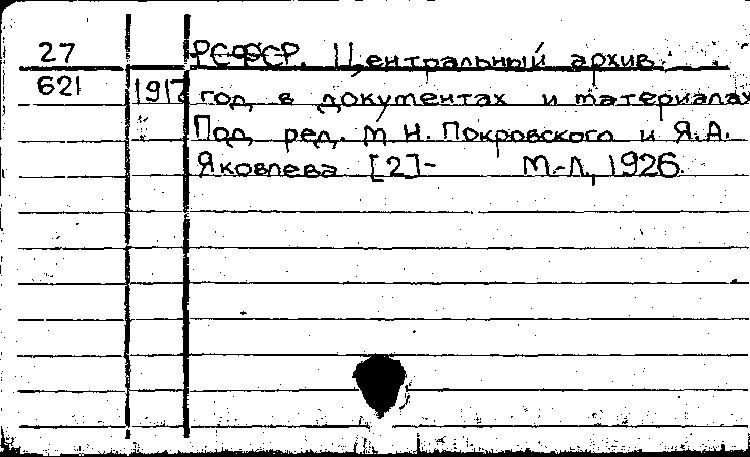 27 РСФСР. Центральный архив.
621 1917 год в документах и материалах
Под ред. М.Н. Покровского и Я.А.
Яковлева [2]- М.-Л., 1926.